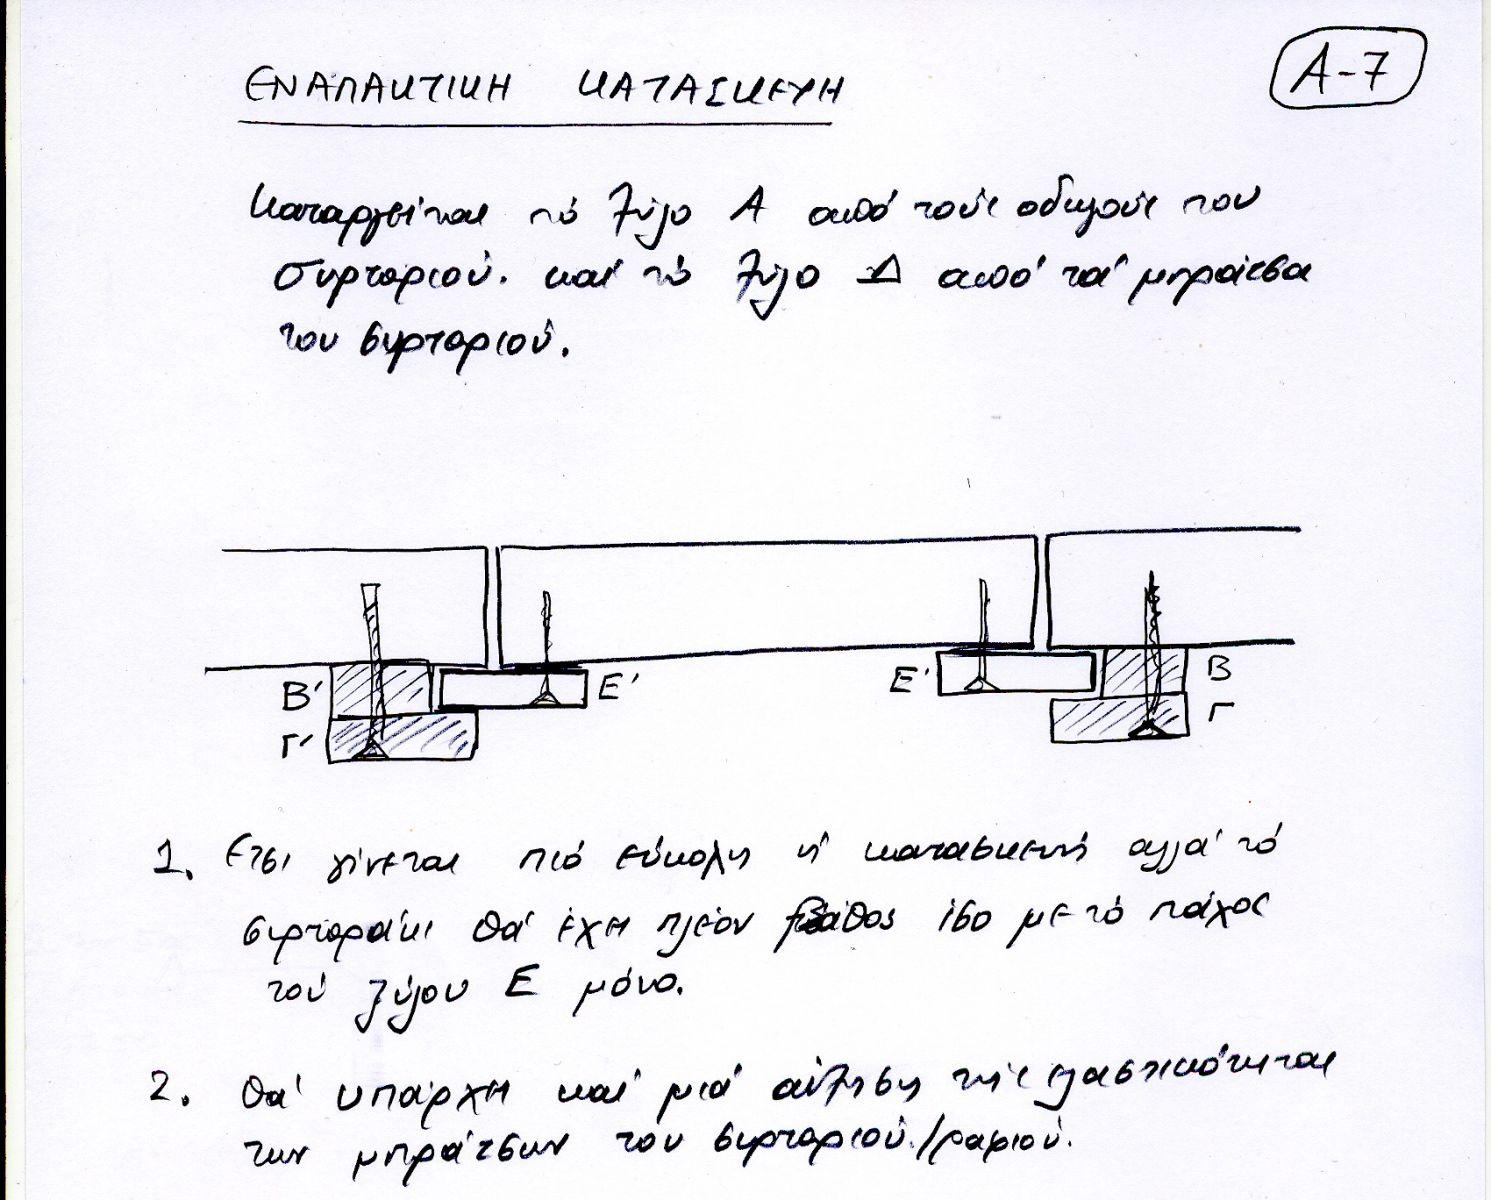 Α-7
ΕΝΑΛΑΚΤΙΚΗ ΚΑΤΑΣΚΕΥΗ
Καταργείται τό ξύλο Α από τούς οδηγούς του
συρταριού. καί τό ξύλο Δ από τά μπράτσα
του συρταριού.
Β' Ε' Ε' Β
Γ' Γ
1. Ετσι γίνεται πιό εύκολη ή κατασκευή αλλά τό
συρταράκι θά έχη πλέον βάθος ίσο με τό πάχος
τού ξύλου Ε μόνο.
2. Θά υπάρχη καί μιά αύξηση τής ελαστικότηται
των μπράτσων του συρταριού/ραφιού.